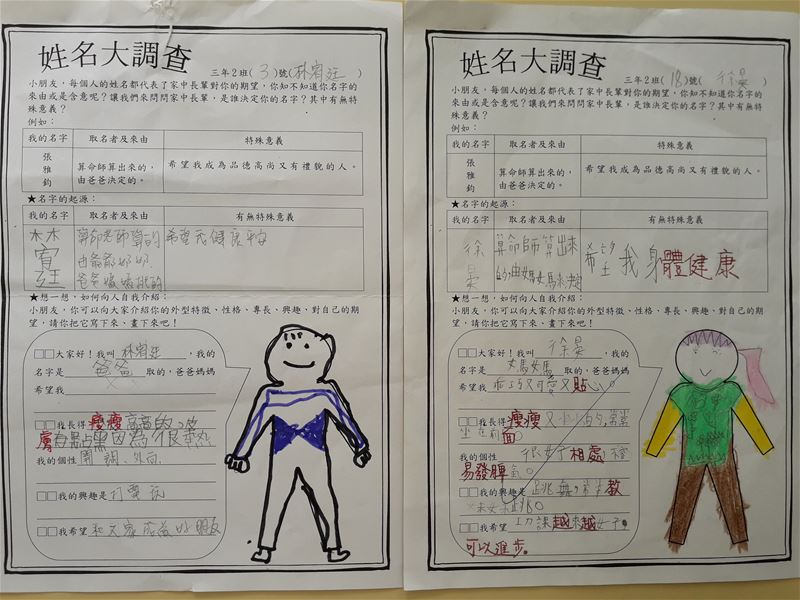 姓名大調查
三年2班(3)號(林宥廷)
小朋友,每個人的姓名都代表了家中長輩對你的期望,你知不知道你名字的
來由或是含意呢?讓我們來問問家中長輩,是誰決定你的名字?其中有無特
殊意義?
例如:
我的名字 取名者及來由 特殊意義
張雅鈞 算命師算出來的,由爸爸決定的。 希望我成為品德高尚又有禮貌的人。
★名字的起源:
我的名字 取名者及來由 有無特殊意義
林宥廷 算命老師算的 希望我健康平安
由爺爺奶奶
爸爸媽媽挑的
★想一想,如何向人自我介紹:
小朋友,你可以向大家介紹你的外型特徵、性格、專長、興趣、對自己的期
望,請你把它寫下來、畫下來吧!
□□大家好!我叫林宥廷,我的
名字是爸爸取的,爸爸媽媽
希望我
□□我長得瘦瘦高高的,皮
膚有點黑因為很熱
我的個性開朗、外向
□□我的興趣是打電玩
□□我希望和大家成為好朋友
姓名大調查
三年2班(18)號(徐晏)
小朋友,每個人的姓名都代表了家中長輩對你的期望,你知不知道你名字的
來由或是含意呢?讓我們來問問家中長輩,是誰決定你的名字?其中有無特
殊意義?
例如:
我的名字 取名者及來由 特殊意義
張雅鈞 算命師算出來的,由爸爸決定的。 希望我成為品德高尚又有禮貌的人。
★名字的起源:
我的名字 取名者及來由 有無特殊意義
徐晏 算命師算出來的由媽媽來決定 希望我身體健康
★想一想,如何向人自我介紹:
小朋友,你可以向大家介紹你的外型特徵、性格、專長、興趣、對自己的期
望,請你把它寫下來、畫下來吧!
□□大家好!我叫徐晏,我的
名字是媽媽取的,爸爸媽媽
希望我乖巧又可愛又貼心。
□□我長得瘦瘦又小小的,常常
坐在前面
我的個性很好相處不容
易發脾氣。
□□我的興趣是跳舞,常常教
妹妹跳。
□□我希望功課越來越好,
可以進步。